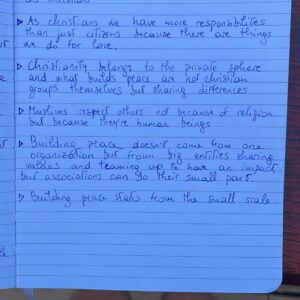 as christians
▷ As christians we have more responsibilities
than just citizens because there are things
we do for love.
▷ Christianity belongs to the private sphere
and what builds peace are not christian
groups themselves but sharing differences
▷ Muslims respect others not because of religion
but because they're human beings
▷ Building peace doesn't come from one
organization but from big entities sharing
values and teaming up to have an impact
but associations can do their small part
▷ Building peace starts from the small scale